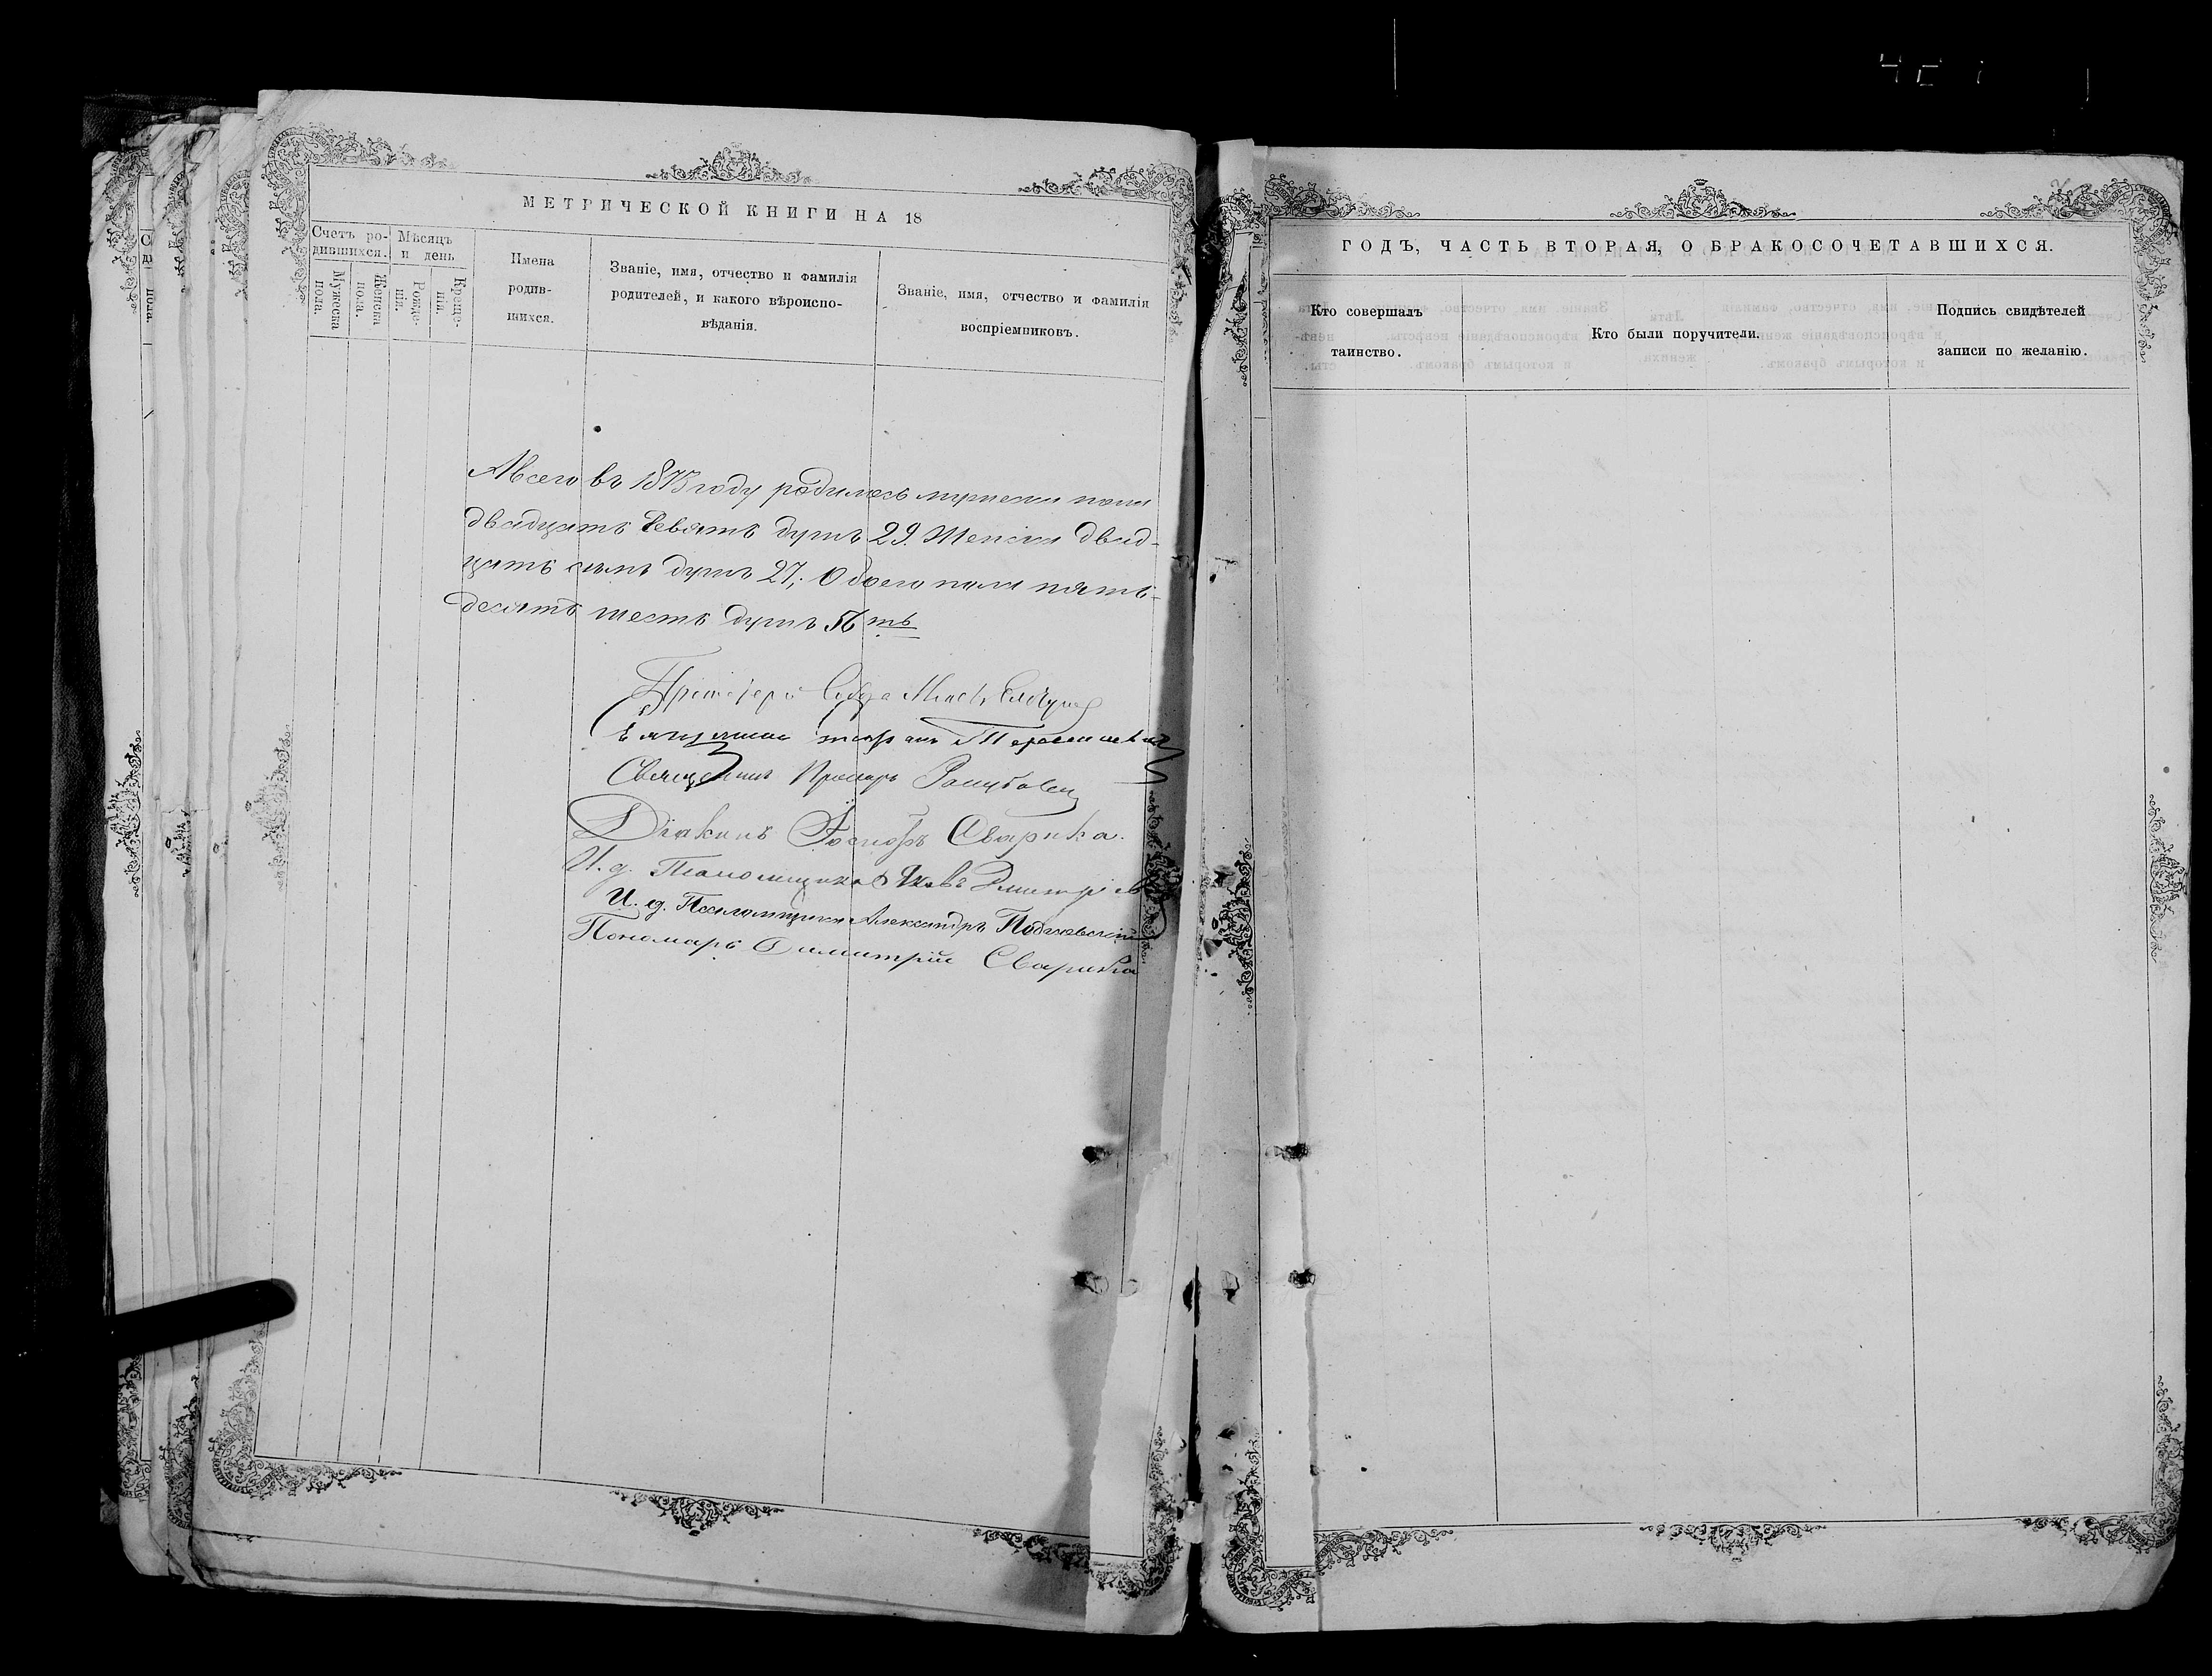 МЕТРИЧЕСКОЙ КНИГИ НА 18
Счетъ родившихся.
Мужеска пола.
Женска пола.
Мѣсяцъ и день
Рожденія.
Крещенія.
Имена родившихся.
Званіе, имя, отчество и фамилія
родителей, и какого вѣроиспо-
вѣданія.
Званіе, имя, отчество и фамилія
воспріемниковъ.
Авсего въ 1875 году родилось мужеска пола
двадцать девять душъ 29. Женска двад-
цать семь душъ 27; Обоего пола пять-
десятъ шесть душъ 56 ть
Священникъ
Священникъ
Діаконъ Іосифъ Сварика.
И. д. Псаломщика Яковъ Дмитріевъ
И. д. Псаломщика Александръ
Пономарь Димитрій Сварика
ГОДЪ, ЧАСТЬ ВТОРАЯ, О БРАКОСОЧЕТАВШИХСЯ.
Кто совершалъ
таинство.
Кто были поручители.
Подпись свидѣтелей
записи по желанію.